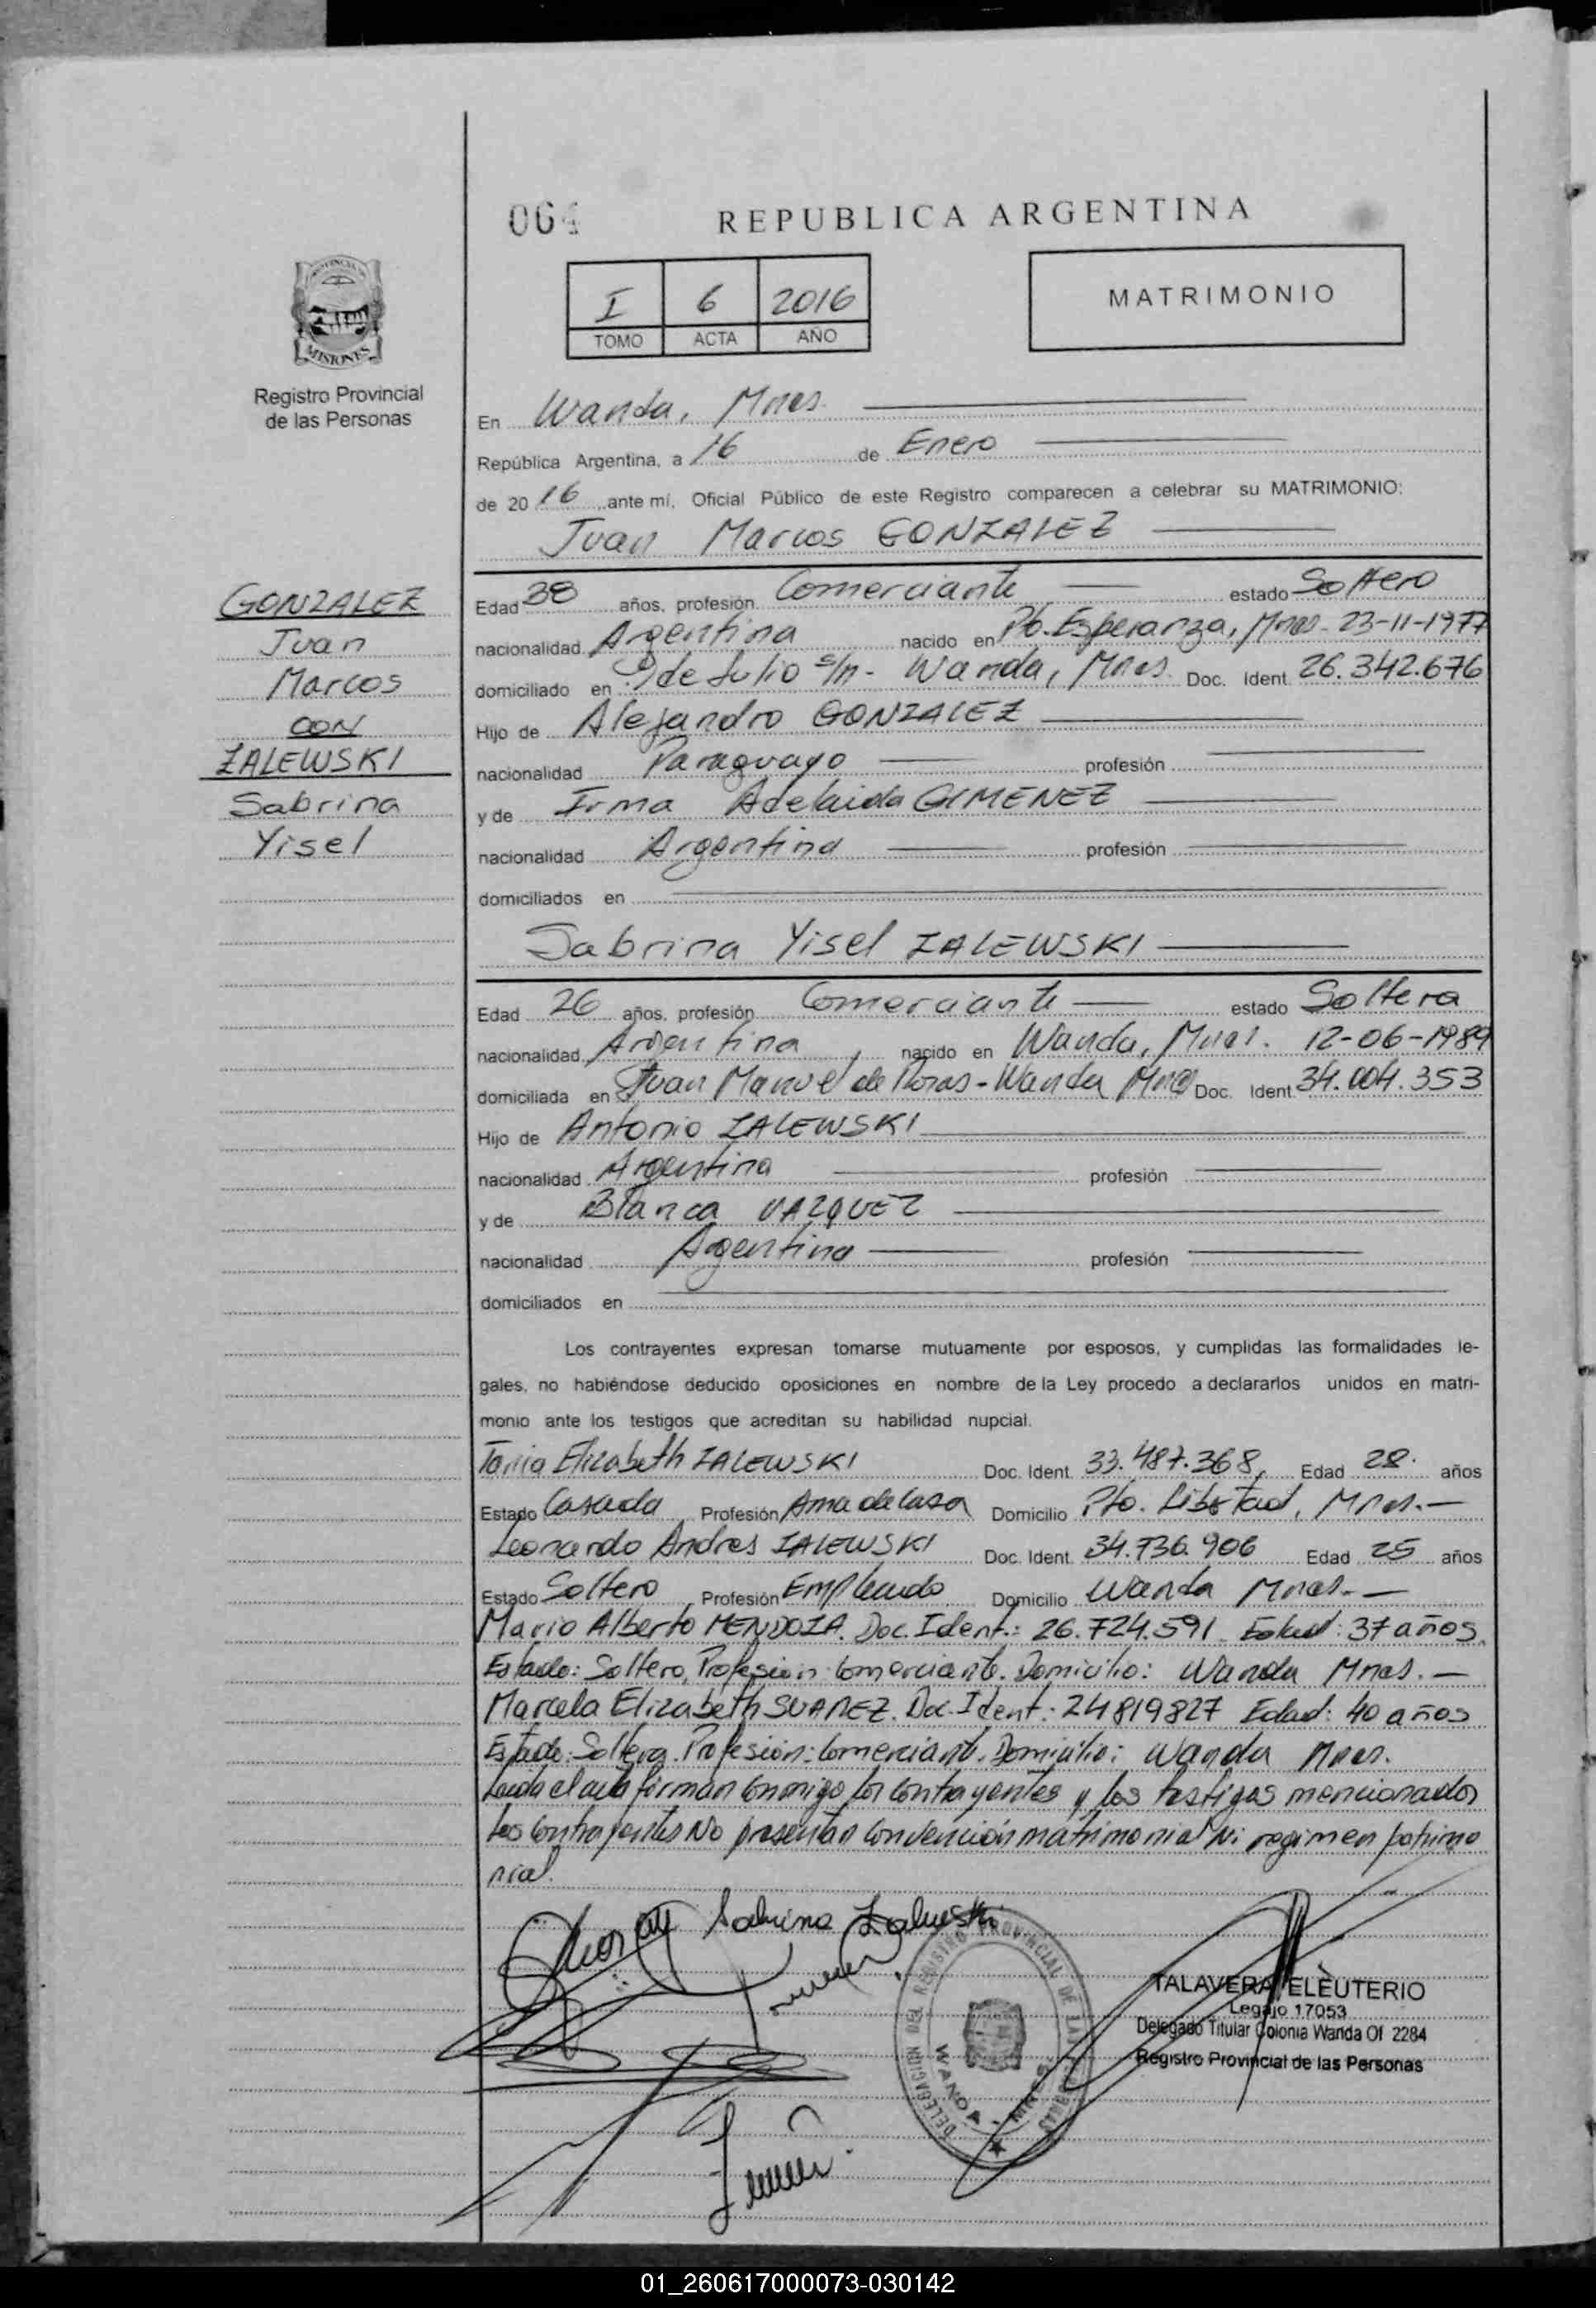 REPUBLICA ARGENTINA
I 6 2016
TOMO ACTA AÑO
MATRIMONIO
MISIONES
Registro Provincial
de las Personas
En Wanda, Mnes.
República Argentina, a 16 de Enero
de 20 16 ante mí, Oficial Público de este Registro comparecen a celebrar su MATRIMONIO:
Juan Marcos GONZALEZ
GONZALEZ
Juan
Marcos
CON
ZALEWSKI
Sabrina
Yisel
Edad 38 años, profesión Comerciante estado Soltero
nacionalidad Argentina nacido en Pto. Esperanza, Mnes - 23-11-1977
domiciliado en 9 de Julio s/n - Wanda, Mnes. Doc. Ident. 26.342.676
Hijo de Alejandro GONZALEZ
nacionalidad Paraguayo profesión
y de Irma Adelaida GIMENEZ
nacionalidad Argentina profesión
domiciliados en
Sabrina Yisel ZALEWSKI
Edad 26 años, profesión Comerciante estado Soltera
nacionalidad Argentina nacido en Wanda, Mnes. 12-06-1989
domiciliada en Juan Manuel de Rosas - Wanda Mnes Doc. Ident. 34.004.353
Hijo de Antonio ZALEWSKI
nacionalidad Argentina profesión
y de Blanca VAZQUEZ
nacionalidad Argentina profesión
domiciliados en
Los contrayentes expresan tomarse mutuamente por esposos, y cumplidas las formalidades le-
gales, no habiéndose deducido oposiciones en nombre de la Ley procedo a declararlos unidos en matri-
monio ante los testigos que acreditan su habilidad nupcial.
Tania Elizabeth ZALEWSKI Doc. Ident. 33.487.368, Edad 28. años
Estado Casada Profesión Ama de Casa Domicilio Pto. Libertad, Mnes.-
Leonardo Andres ZALEWSKI Doc. Ident. 34.736.906 Edad 25 años
Estado Soltero Profesión Empleado Domicilio Wanda Mnes.-
Mario Alberto MENDOZA. Doc. Ident.: 26.724.591. Edad: 37 años.
Estado: Soltero, Profesión: Comerciante. Domicilio: Wanda Mnes.-
Marcela Elizabeth SUAREZ. Doc. Ident.: 24819827 Edad: 40 años
Estado: Soltera. Profesión: Comerciante. Domicilio: Wanda Mnes.
Leida el acta firman conmigo los contrayentes y los testigos mencionados
Los contrayentes No presentan convención matrimonial Ni regimen patrimo
nial.
Sabrina Zalewski
DELEGACION DEL REGISTRO PROVINCIAL DE LAS PERSONAS
WANDA - MNES
TALAVERA ELEUTERIO
Legajo 17053
Delegado Titular Colonia Wanda Of 2284
Registro Provincial de las Personas
01_260617000073-030142